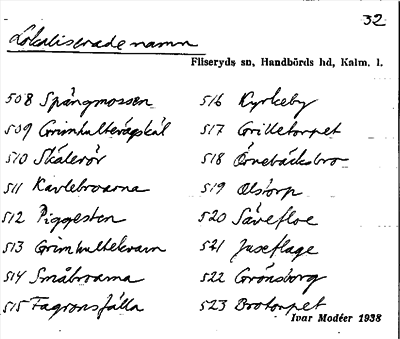 32
Lokaliserade namn
Fliseryds sn, Handbörds hd, Kalm. l.
508 Spångmossen
509 Grimhulteråpskäl
510 Skälerör
511 Kavlebroarna
512 Piggesten
513 Grimhultekvarn
514 Småbroarna
515 Fagronsfälla
516 Kyrkeby
517 Grilletorpet
518 Örnebäcksbro
519 Olstorp
520 Sävefloe
521 Juseflage
522 Grönsborg
523 Brotorpet
Ivar Modéer 1938